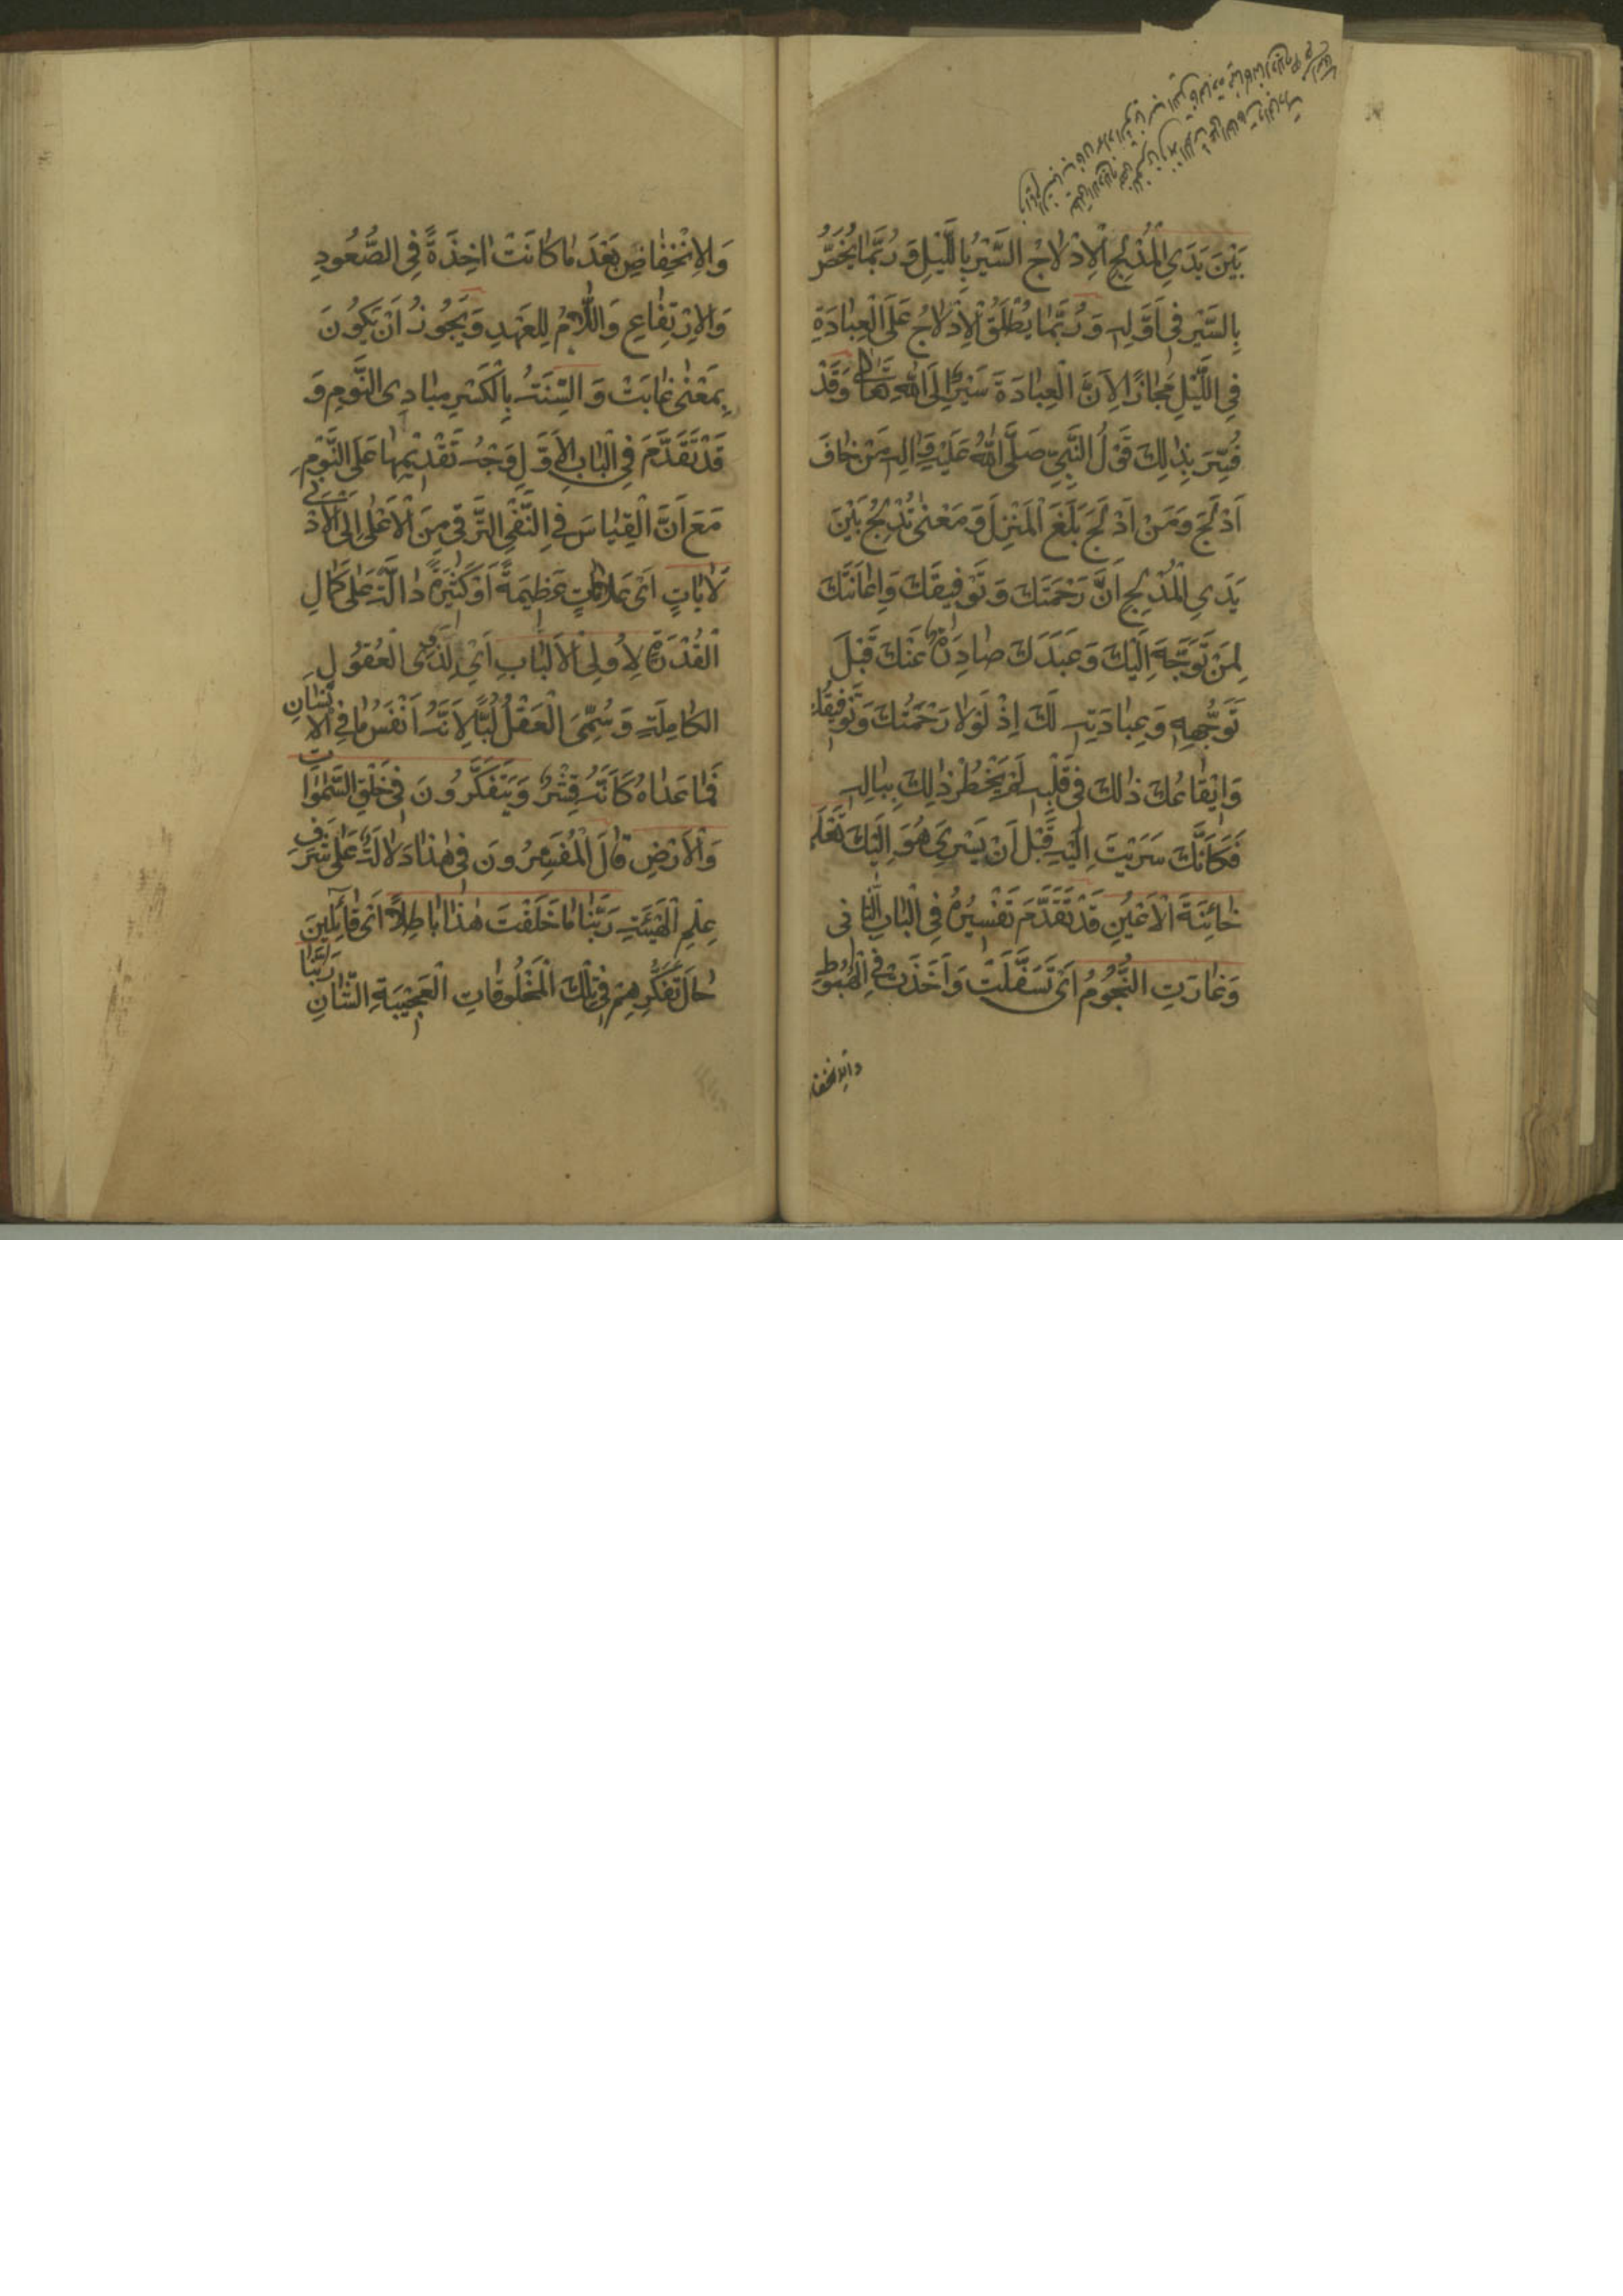 بَيْنَ يَدَيِ الْمُدْلِجِ الْاِدْلاجُ السَّيْرُ بِاللَّيْلِ وَ رُبَّمَا يُخَصُّ
بِالسَّيْرِ فِي اَوَّلِهِ وَ رُبَّمَا يُطْلَقُ الْاِدْلاجُ عَلَى الْعِبَادَةِ
فِي اللَّيْلِ مَجَازًا لِاَنَّ الْعِبَادَةَ سَيْرٌ اِلَى اللّٰهِ تَعَالٰى وَقَدْ
فُسِّرَ بِذٰلِكَ قَوْلُ النَّبِيِّ صَلَّى اللّٰهُ عَلَيْهِ وَاٰلِهِ مَنْ خَافَ
اَدْلَجَ وَ مَنْ اَدْلَجَ بَلَغَ الْمَنْزِلَ وَ مَعْنٰى تُدْلِجُ بَيْنَ
يَدَيِ الْمُدْلِجِ اَنَّ رَحْمَتَكَ وَ تَوْفِيقَكَ وَ اِعَانَتَكَ
لِمَنْ تَوَجَّهَ اِلَيْكَ وَ عَبَدَكَ صَادِرَةٌ عَنْكَ قَبْلَ
تَوَجُّهِهِ وَ عِبَادَتِهِ لَكَ اِذْ لَوْلا رَحْمَتُكَ وَ تَوْفِيقُكَ
وَ اِيْقَاعُكَ ذٰلِكَ فِي قَلْبِهِ لَمْ يَخْطُرْ ذٰلِكَ بِبَالِهِ
فَكَاَنَّكَ سَرَيْتَ اِلَيْهِ قَبْلَ اَنْ يَسْرِيَ هُوَ اِلَيْكَ تَعْلَمُ
خَائِنَةَ الْاَعْيُنِ قَدْ تَقَدَّمَ تَفْسِيرُهُ فِي الْبَابِ الثَّانِي
وَ غَارَتِ النُّجُومُ اَيْ تَسَفَّلَتْ وَ اَخَذَتْ فِي الْهُبُوطِ
وَالِانخفا
وَالِانْخِفَاضِ بَعْدَ مَا كَانَتْ اٰخِذَةً فِي الصُّعُودِ
وَالِارْتِفَاعِ وَاللّامُ لِلْعَهْدِ وَ يَجُوزُ اَنْ يَكُوْنَ
بِمَعْنٰى غَابَتْ وَ السِّنَةُ بِالْكَسْرِ مَبَادِى النَّوْمِ وَ
قَدْ تَقَدَّمَ فِي الْبَابِ الْاَوَّلِ وَجْهُ تَقْدِيْمِهَا عَلَى النَّوْمِ
مَعَ اَنَّ الْقِيَاسَ فِي النَّفْيِ التَّرَقِّي مِنَ الْاَعْلٰى اِلَى الْاَدْنٰى
لَاٰيَاتٍ اَيْ عَلَامَاتٍ عَظِيمَةً اَوْ كَثِيْرَةً دَالَّةً عَلٰى كَمَالِ
الْقُدْرَةِ لِاُولِي الْاَلْبَابِ اَيْ لِذَوِي الْعُقُولِ
الكَامِلَةِ وَ سُمِّيَ الْعَقْلُ لُبًّا لِاَنَّهُ اَنْفَسُ مَا فِي الْاِنْسَانِ
فَمَا عَدَاهُ كَاَنَّهُ قِشْرٌ وَ يَتَفَكَّرُونَ فِي خَلْقِ السَّمٰوَاتِ
وَالْاَرْضِ قَالَ الْمُفَسِّرُونَ فِي هٰذَا دَلَالَةٌ عَلٰى شَرَفِ
عِلْمِ الْهَيْئَةِ رَبَّنَا مَا خَلَقْتَ هٰذَا بَاطِلًا اَيْ قَائِلِينَ
حَالَ تَفَكُّرِهِمْ فِي تِلْكَ الْمَخْلُوقَاتِ الْعَجِيْبَةِ الشَّانِ رَبَّنَا